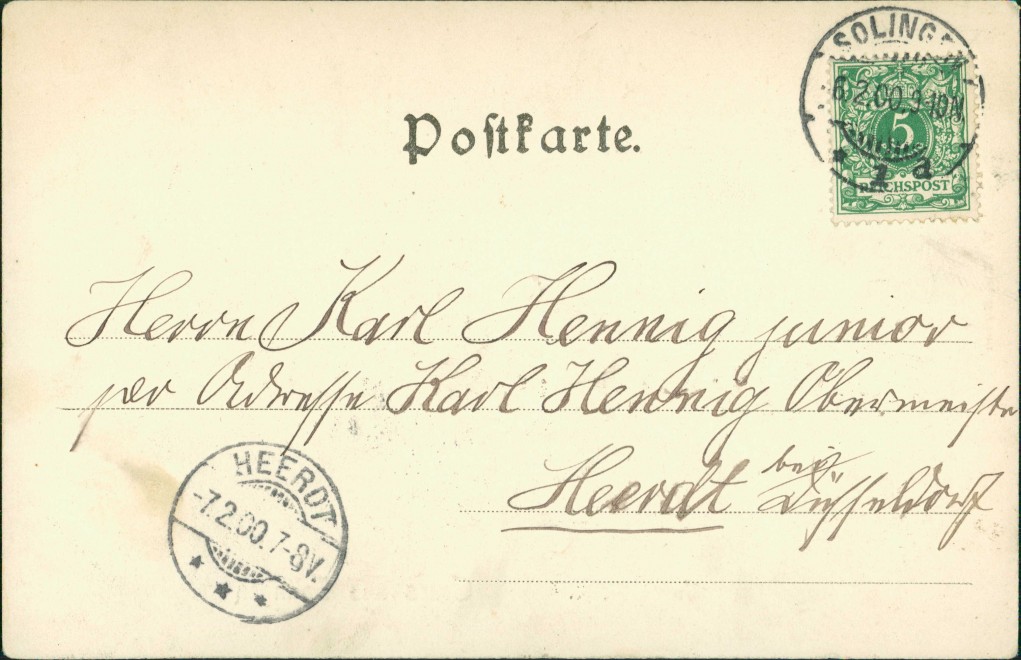 SOLINGEN
6.2.00.9-10N
1 d
5
REICHSPOST
Postkarte.
Herrn Karl Hennig junior
per Adresse Karl Hennig Obermeister
Heerdt bei Düsseldorf
HEERDT
-7.2.00.7-8V.